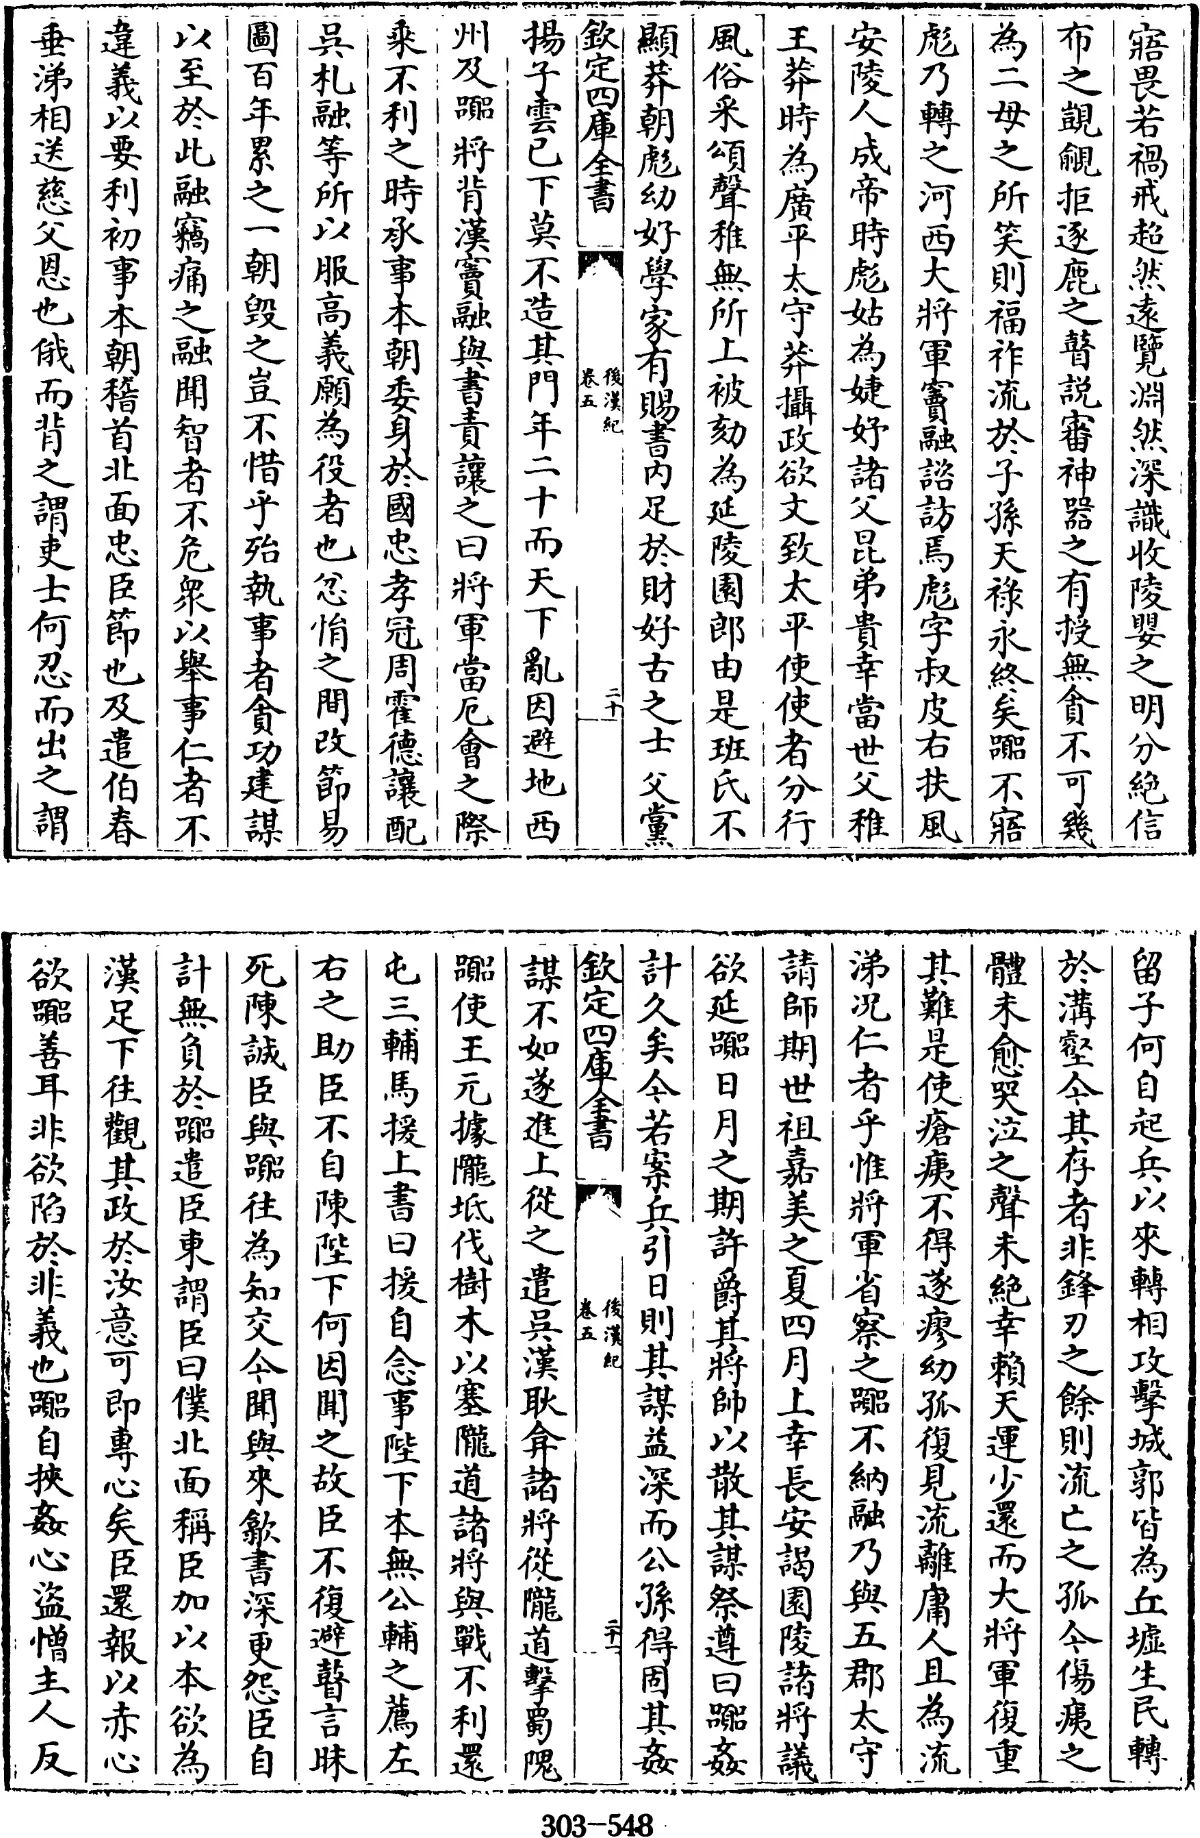 寤畏若禍戒超然遠覽淵然深識收陵嬰之明分絶信
布之覬覦拒逐鹿之瞽説審神器之有授無貪不可幾
為二母之所笑則福祚流於子孫天祿永終矣囂不寤
彪乃轉之河西大將軍竇融諮訪焉彪字叔皮右扶風
安陵人成帝時彪姑為婕妤諸父昆弟貴幸當世父稚
王莽時為廣平太守莽攝政欲文致太平使使者分行
風俗采頌聲稚無所上被劾為延陵園郎由是班氏不
顯莽朝彪幼好學家有賜書內足於財好古之士父黨
欽定四庫全書
後漢紀
卷五
二十
揚子雲已下莫不造其門年二十而天下亂因避地西
州及囂將背漢竇融與書責讓之曰將軍當厄會之際
乘不利之時承事本朝委身於國忠孝冠周霍德讓配
吳札融等所以服高義願為役者也忿悁之間改節易
圖百年累之一朝毀之豈不惜乎殆執事者貪功建謀
以至於此融竊痛之融聞智者不危衆以舉事仁者不
違義以要利初事本朝稽首北面忠臣節也及遣伯春
垂涕相送慈父恩也俄而背之謂吏士何忍而出之謂
留子何自起兵以來轉相攻擊城郭皆為丘墟生民轉
於溝壑今其存者非鋒刃之餘則流亡之孤今傷痍之
體未愈哭泣之聲未絶幸賴天運少還而大將軍復重
其難是使瘡痍不得遂瘳幼孤復見流離庸人且為流
涕况仁者乎惟將軍省察之囂不納融乃與五郡太守
請師期世祖嘉美之夏四月上幸長安謁園陵諸將議
欲延囂日月之期許爵其將帥以散其謀祭遵曰囂姦
計久矣今若案兵引日則其謀益深而公孫得固其姦
欽定四庫全書
後漢紀
卷五
二十一
謀不如遂進上從之遣吳漢耿弇諸將從隴道擊蜀隗
囂使王元據隴坻伐樹木以塞隴道諸將與戰不利還
屯三輔馬援上書曰援自念事陛下本無公輔之薦左
右之助臣不自陳陛下何因聞之故臣不復避瞽言昧
死陳誠臣與囂往為知交今聞與來歙書深更怨臣自
計無負於囂遣臣東謂臣曰僕北面稱臣加以本欲為
漢足下往觀其政於汝意可即專心矣臣還報以赤心
欲囂善耳非欲陷於非義也囂自挾姦心盜憎主人反
303-548